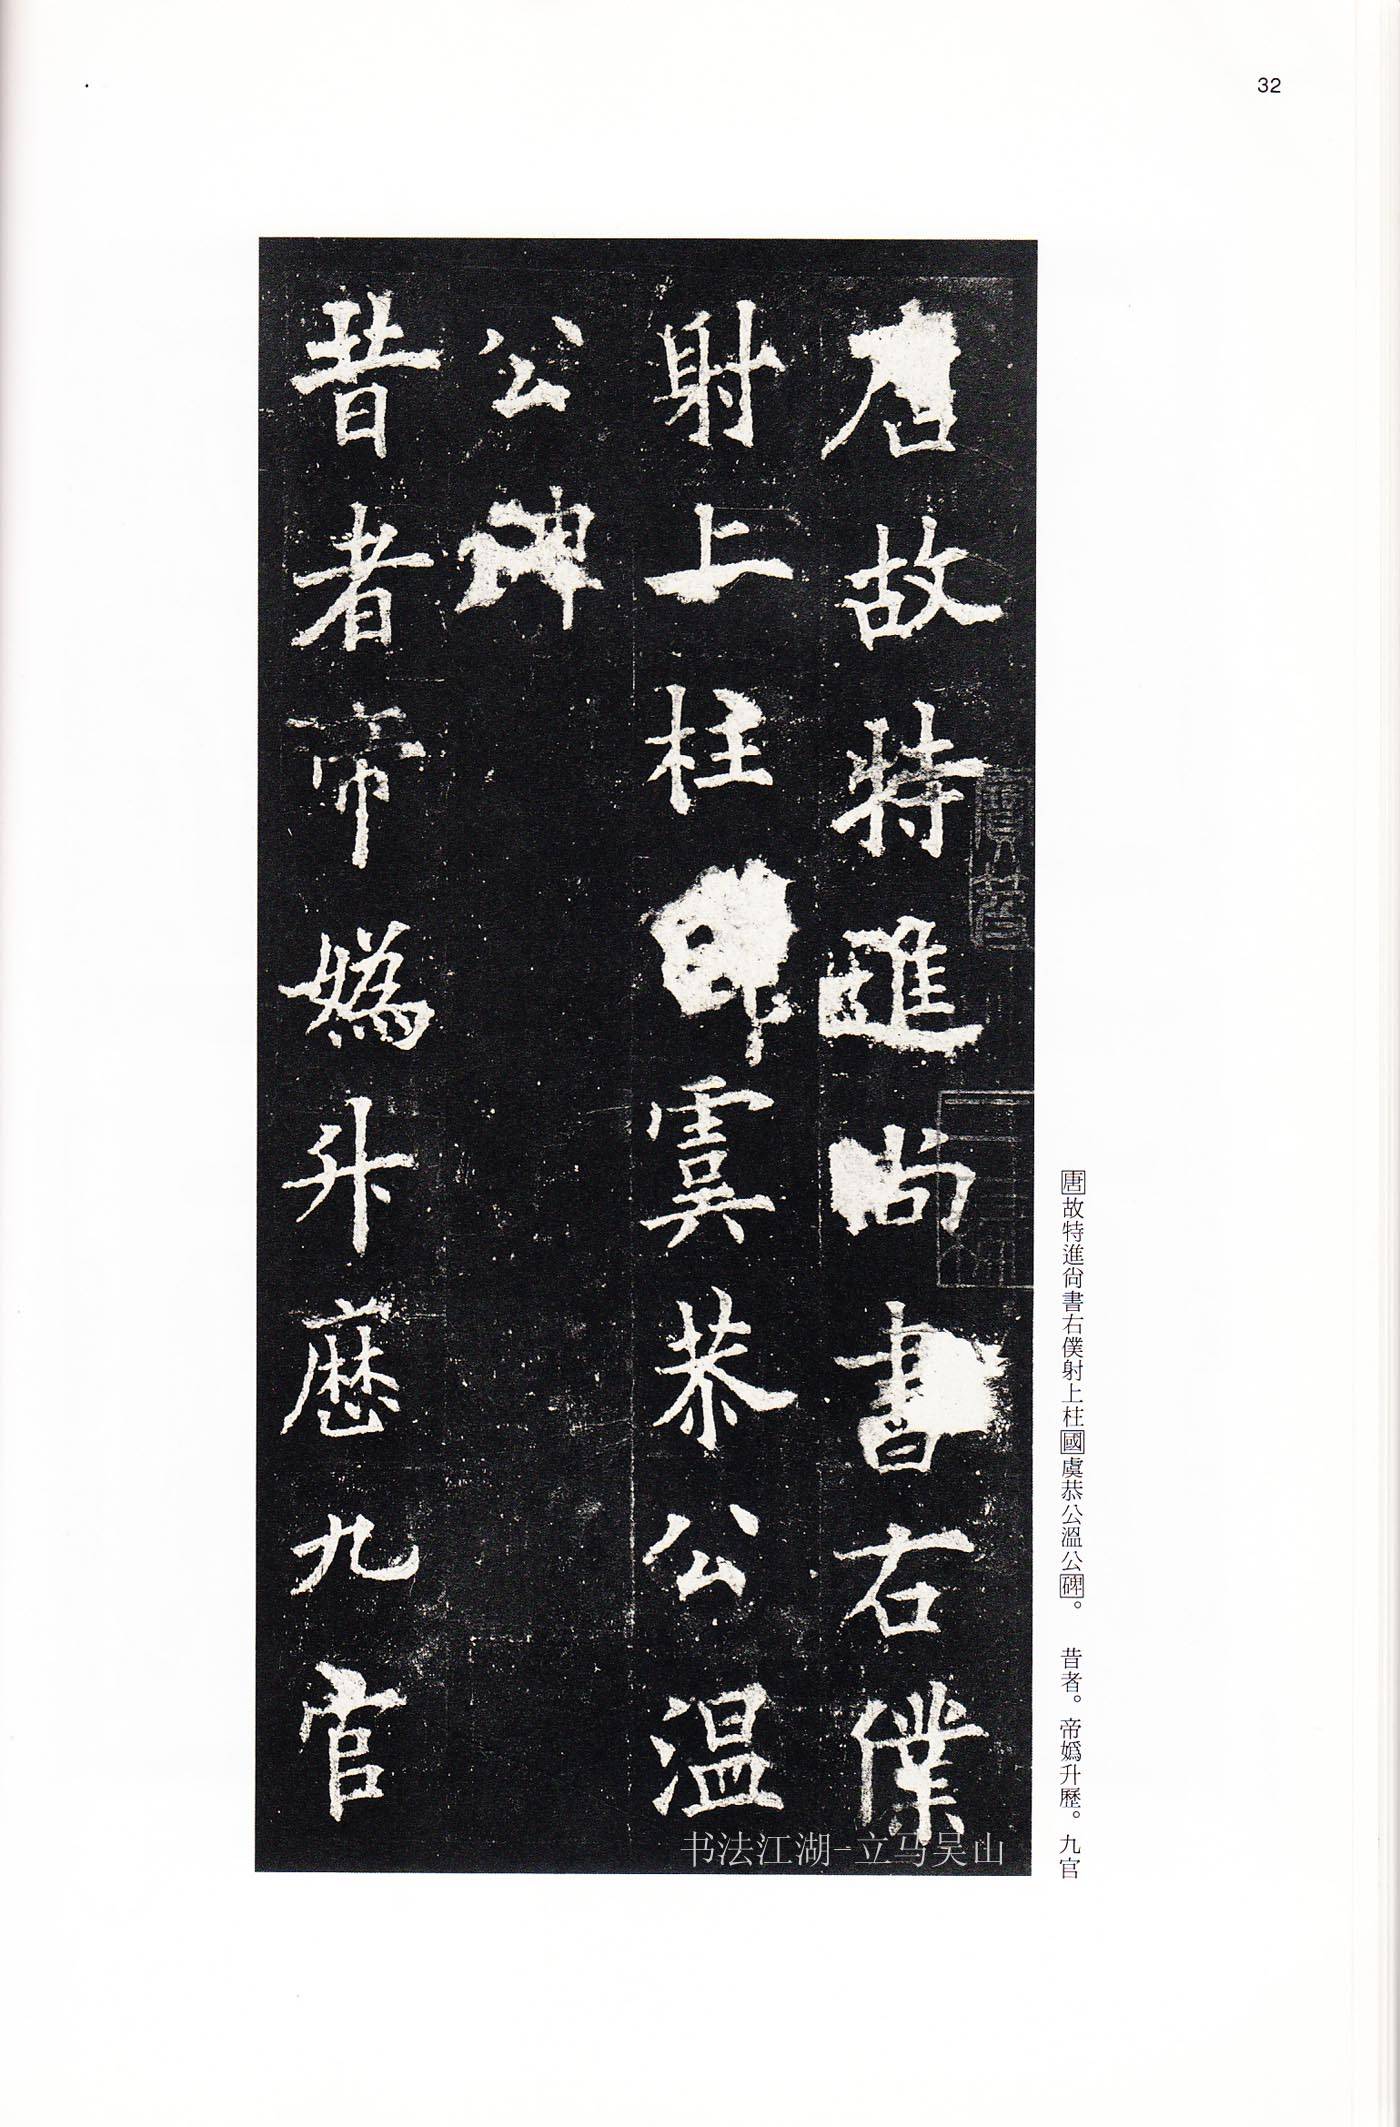 32
唐故特進尚書右僕
射上柱國虞恭公温
公碑
昔者帝嬀升歷九官
唐故特進尙書右僕射上柱國虞恭公溫公碑。　昔者。帝嬀升歷。九官
书法江湖-立马吴山